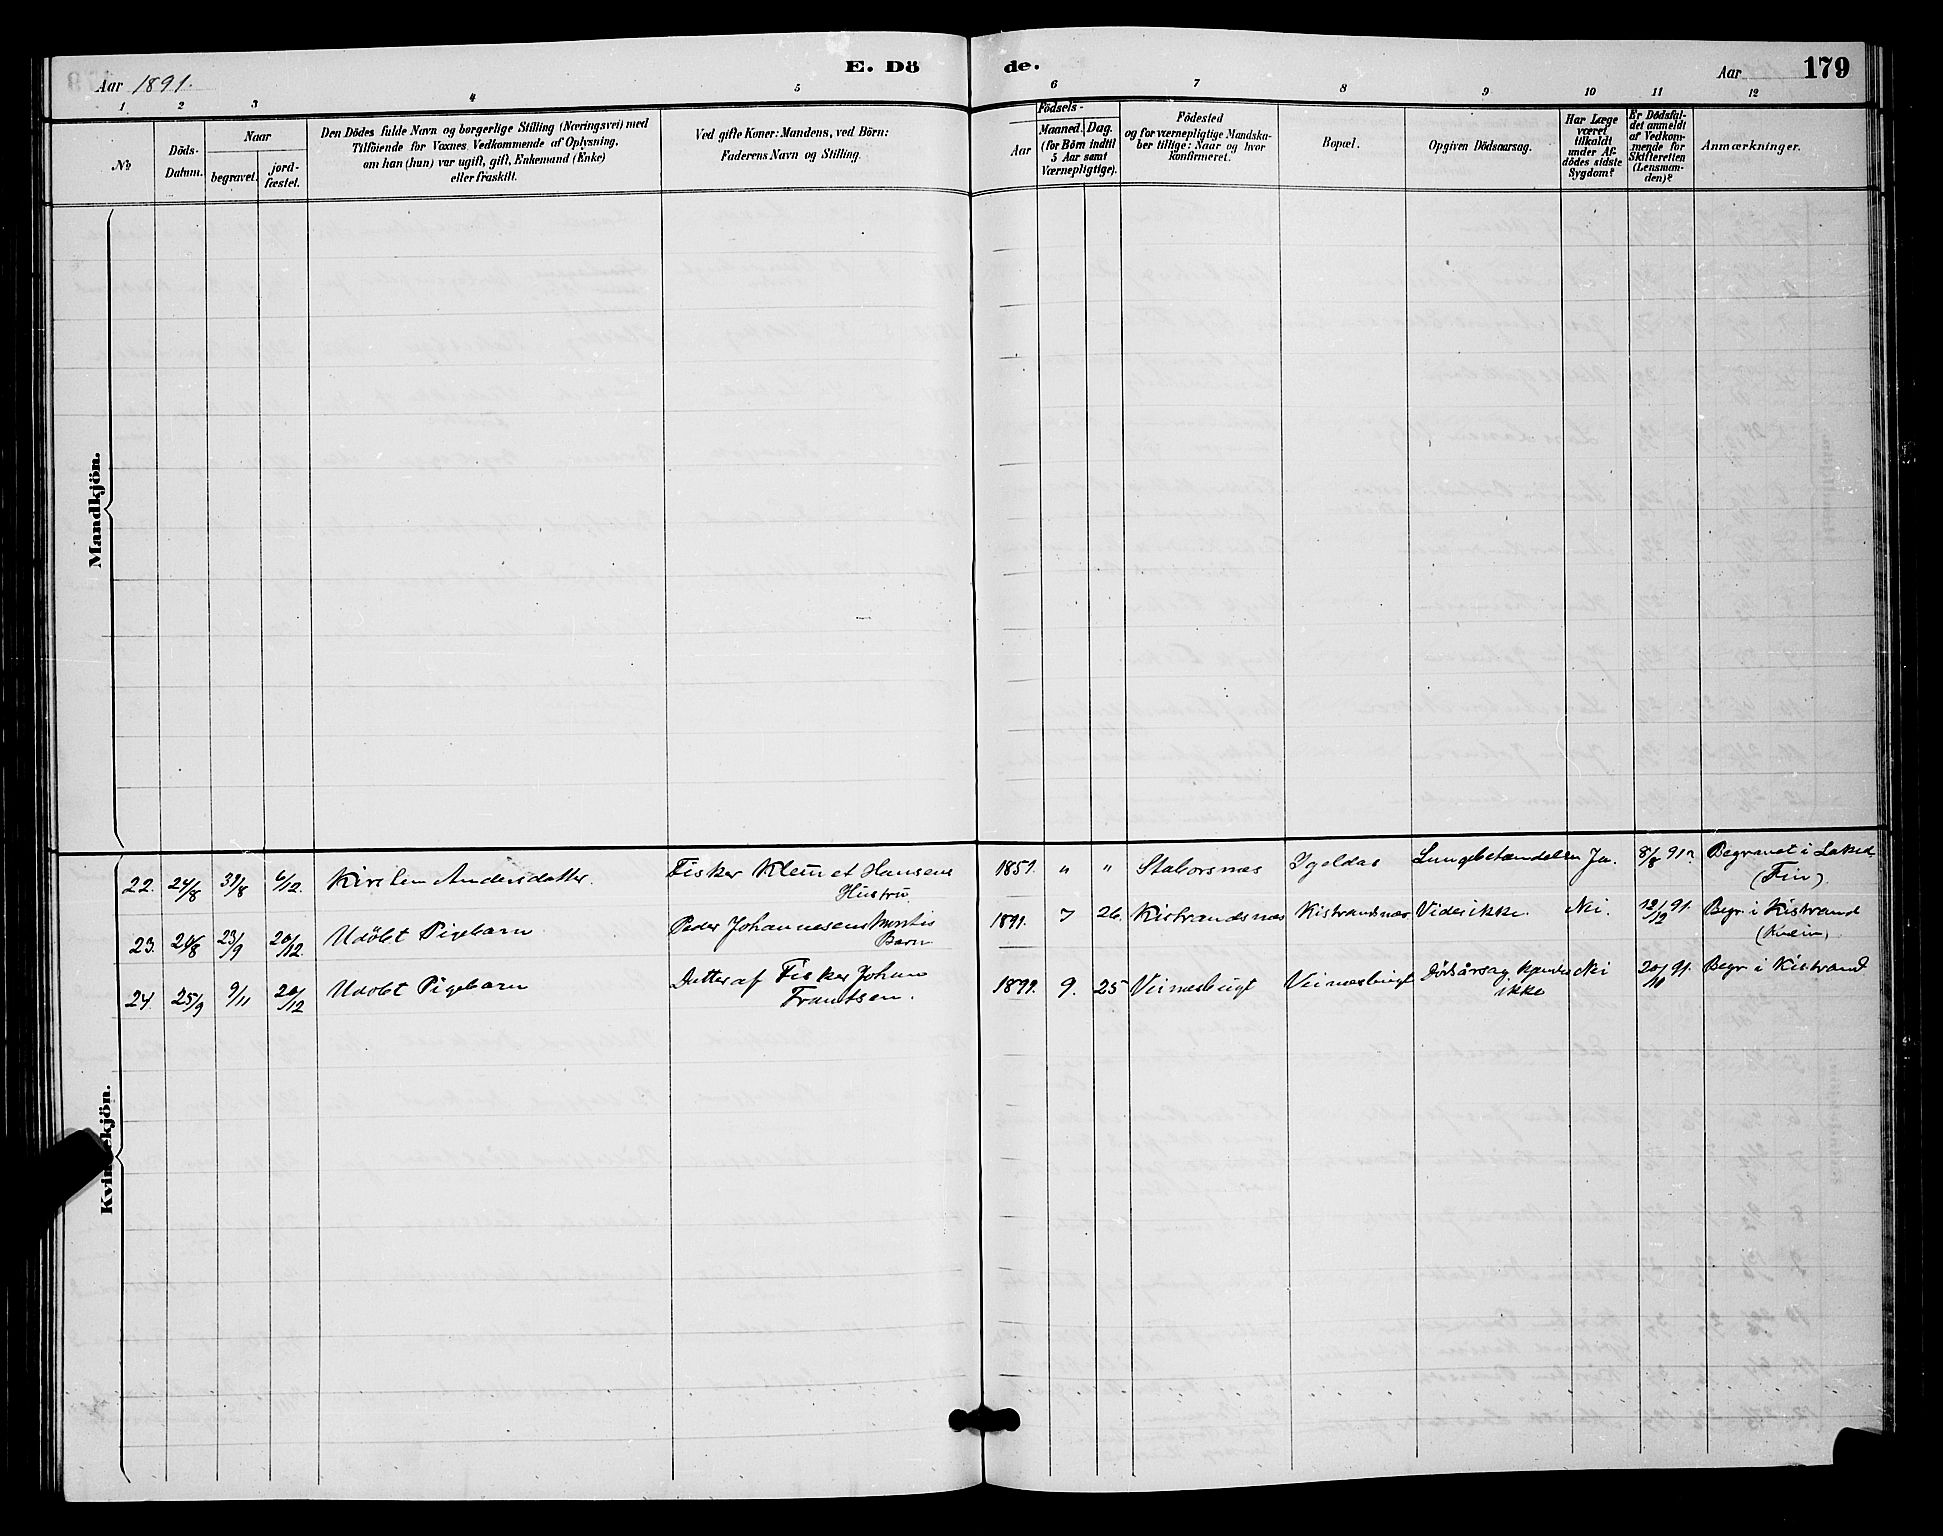 Aar 1891.
E. Dö
de.
Aar
179
1 2 3 4 5 6 7 8 9 10 11 12
No
Döds-
Datum.
Naar
begravet.
jord-
fæstet.
Den Dödes fulde Navn og borgerlige Stilling (Næringsvei) med
Tilföiende for Voxnes Vedkommende af Oplysning,
om han (hun) var ugift, gift, Enkemand (Enke)
eller fraskilt.
Ved gifte Koner: Mandens, ved Börn:
Faderens Navn og Stilling.
Födsels-
Aar
Maaned. Dag.
(for Börn indtil
5 Aar samt
Værnepligtige).
Födested
og for værnepligtige Mandska-
ber tillige: Naar og hvor
konfirmeret.
Bopæl.
Opgiven Dödsaarsag.
Har Læge
været
tilkaldt
under Af-
dödes sidste
Sygdom?
Er Dödsfal-
det anmeldt
af Vedkom-
mende for
Skifteretten
(Lensman-
den)?
Anmærkninger.
Mandkjön.
Kvindekjön.
22. 24/8 31/8 6/12. Kirsten Andersdatter. Fisker Klemet Hansens 1851. " " Staborsnæs Lungebetændelse Ja. Begravet i
Hustru (Fin).
23. 23/9 20/12. Udöbt Pigebarn Peder Johannesens 1891. 7 26. Kistrandsnæs Kistrandsnæs Vides ikke. Nei. 91. Begr. i Kistrand
Barn (Kvæn)
24. 25/9 9/11 20/12 Udöbt Pigebarn Datter af Fisker Johan 1891. 9. 25 Veinæsbugt Veinæsbugt Dödsårsag kjendes Nei 20/10 91. Begr i Kistrand
Frantsen. ikke